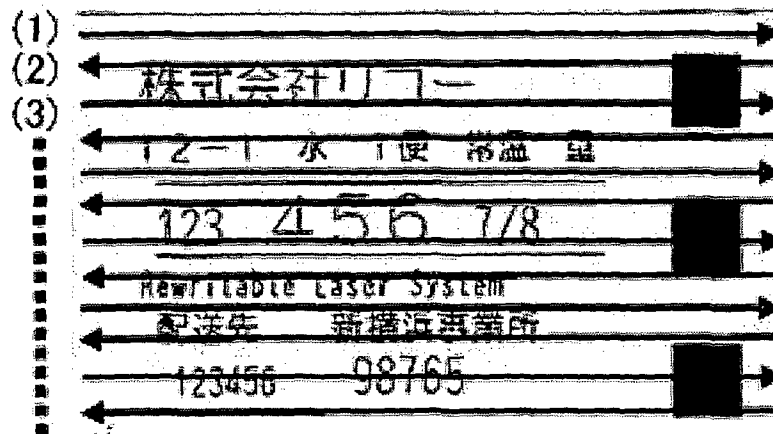 (1)
(2)
株式会社リコー
(3)
12-1 水 1便 常温
123 456 7/8
Rewritable Laser System
配送先 新横浜事業所
123456 98765